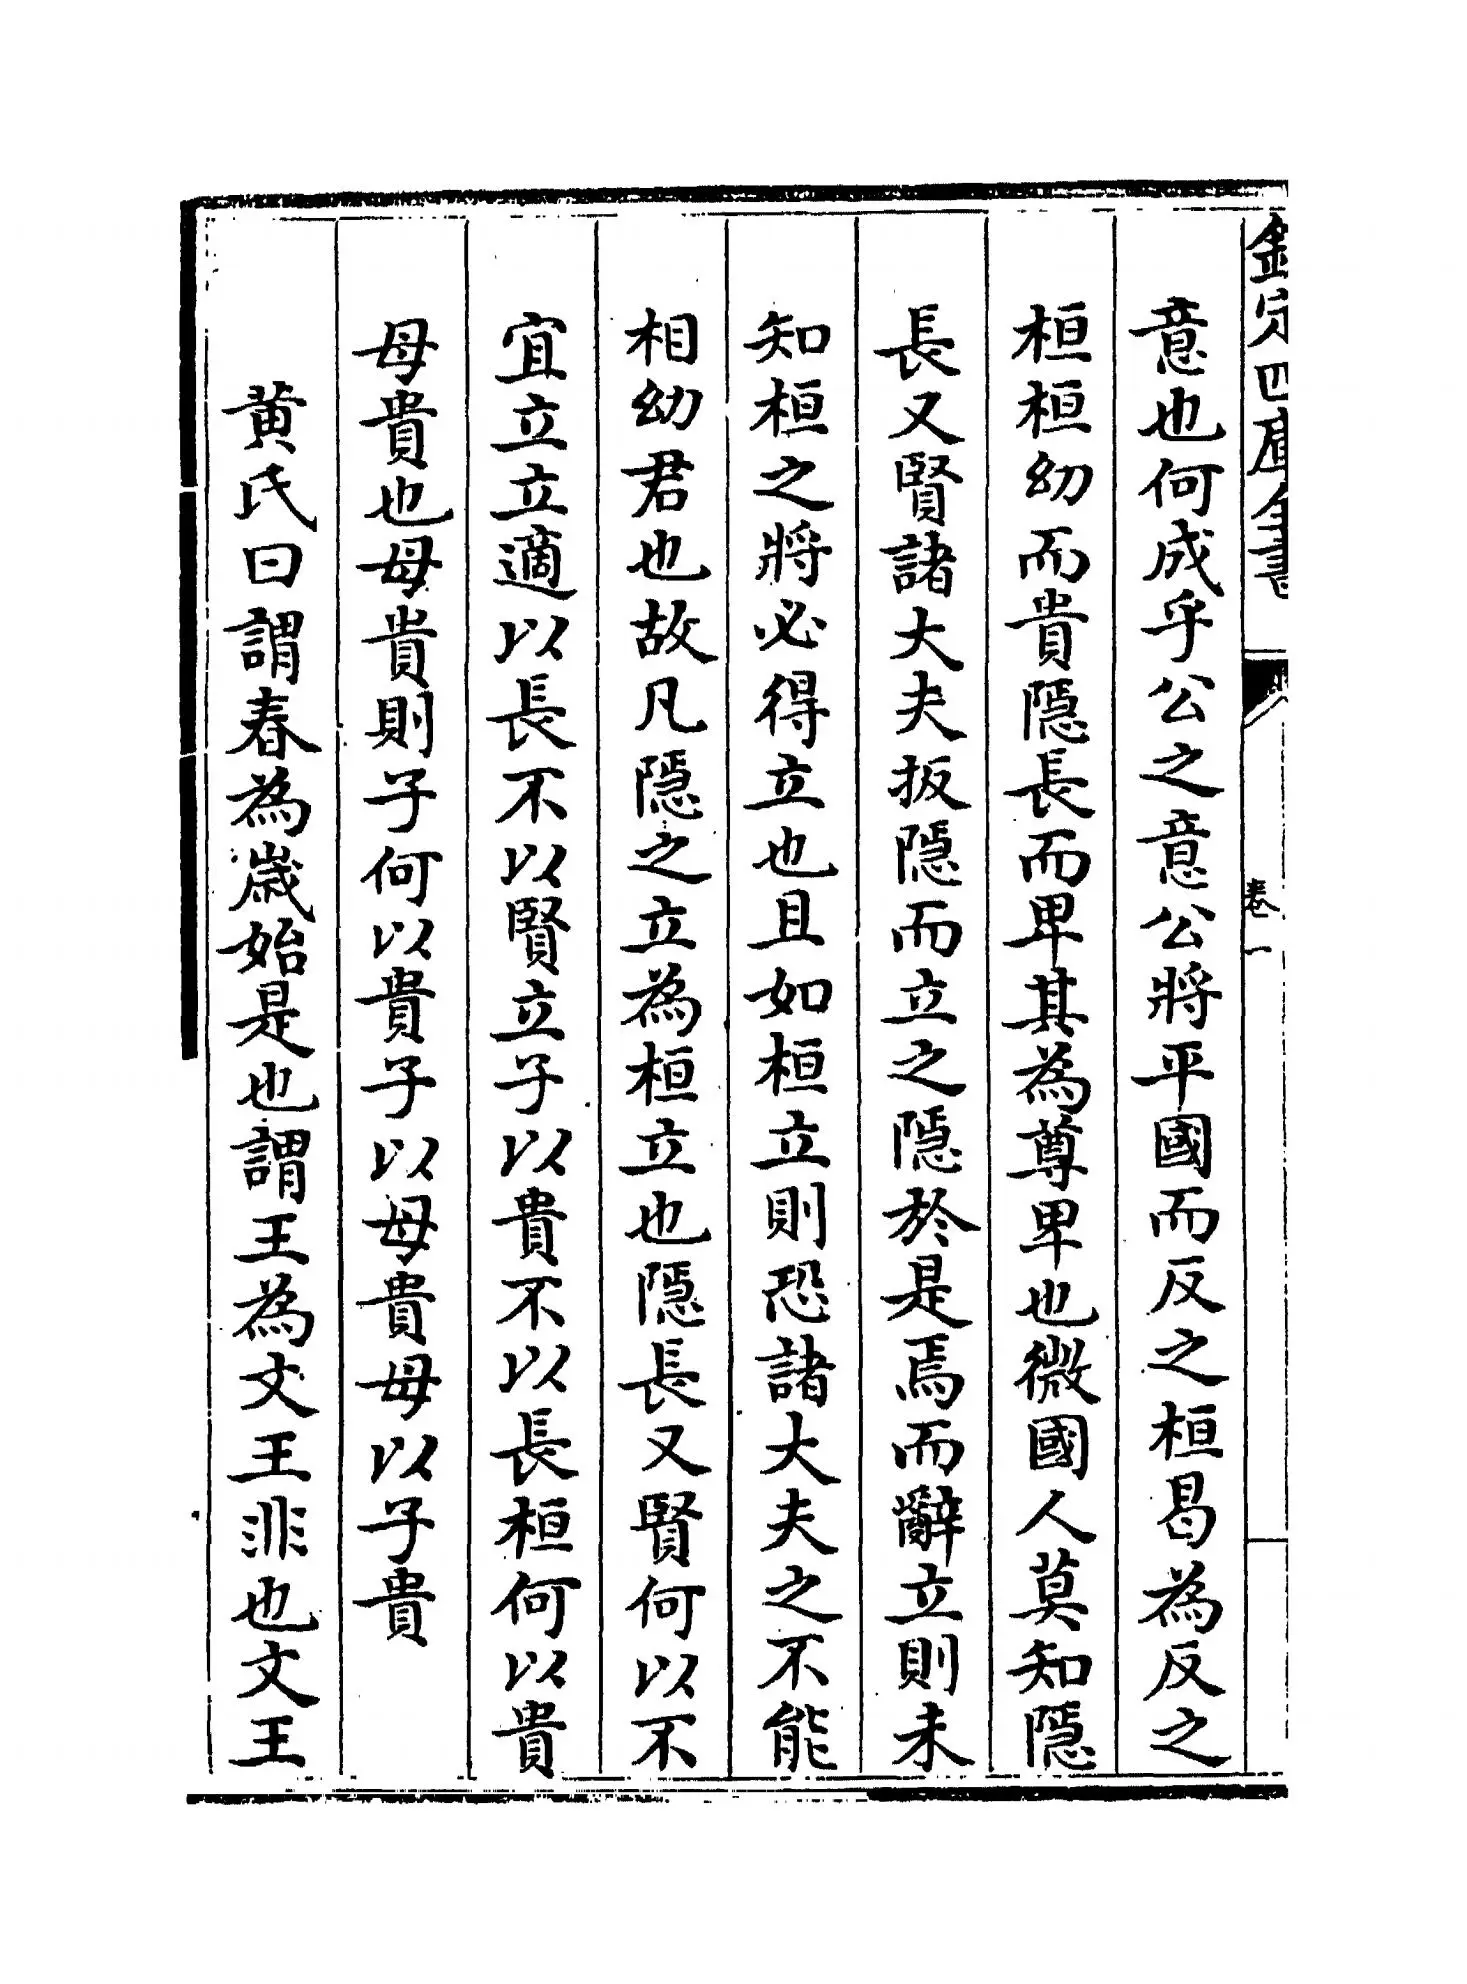 欽定四庫全書
卷一
意也何成乎公之意公將平國而反之桓曷為反之
桓桓幼而貴隱長而卑其為尊卑也微國人莫知隱
長又賢諸大夫扳隱而立之隱於是焉而辭立則未
知桓之將必得立也且如桓立則恐諸大夫之不能
相幼君也故凡隱之立為桓立也隱長又賢何以不
宜立立適以長不以賢立子以貴不以長桓何以貴
母貴也母貴則子何以貴子以母貴母以子貴
黄氏曰謂春為歲始是也謂王為文王非也文王